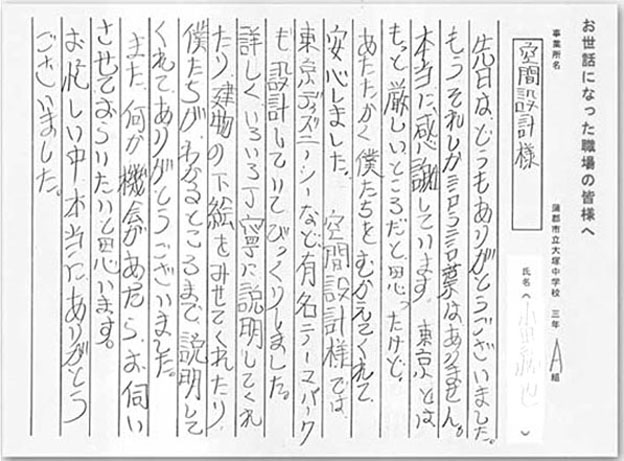 お世話になった職場の皆様へ
事業所名
空間設計様
蒲郡市立大塚中学校 三年 A 組
氏名（ ）
先日は、どうもありがとうございました。
もうそれしか言う言葉はありません。
本当に、感謝しています。東京とは
もっと厳しいところだと思ったけど、
あたたかく僕たちをむかえてくれて、
安心しました。 空間設計様では、
東京ディズニーシーなど有名テーマパーク
も設計していてびっくりしました。
詳しくいろいろ丁寧に説明してくれ
たり、建物の下絵をみせてくれたり、
僕たちが、わかるところまで、説明して
くれて、ありがとうございました。
また、何か機会があったら、お伺い
させてもらいたいと思います。
お忙しい中本当にありがとう
ございました。